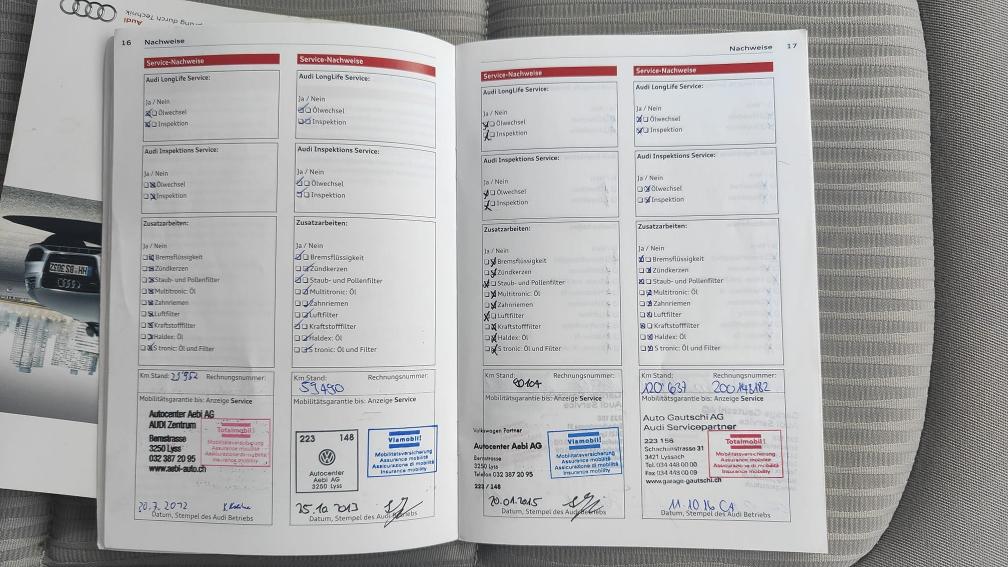 Audi
16 Nachweise
Service-Nachweise
Audi LongLife Service:
Ja / Nein
Ölwechsel
Inspektion
Audi Inspektions Service:
Ölwechsel
Inspektion
Zusatzarbeiten:
Ja / Nein
Bremsflüssigkeit
Zündkerzen
Staub- und Pollenfilter
Multitronic: Öl
Zahnriemen
Luftfilter
Kraftstofffilter
Haldex: Öl
S tronic: Öl und Filter
Km Stand: Rechnungsnummer:
Mobilitätsgarantie bis: Anzeige Service
Autocenter Aebi AG
AUDI Zentrum
Bernstrasse
3250 Lyss
032 387 20 95
www.aebi-auto.ch
Totalmobil!
Mobilitätsversicherung
Assurance mobilité
Assicurazione di mobilità
Insurance mobility
20.7.2012
Datum, Stempel des Audi Betriebs
Service-Nachweise
Audi LongLife Service:
Ja / Nein
Ölwechsel
Inspektion
Audi Inspektions Service:
Ja / Nein
Ölwechsel
Inspektion
Zusatzarbeiten:
Ja / Nein
Bremsflüssigkeit
Zündkerzen
Staub- und Pollenfilter
Multitronic: Öl
Zahnriemen
Luftfilter
Kraftstofffilter
Haldex: Öl
S tronic: Öl und Filter
Km Stand: Rechnungsnummer:
59490
Mobilitätsgarantie bis: Anzeige Service
223 148
Autocenter
Aebi AG
3250 Lyss
Mobilitätsversicherung
Assurance mobilité
Assicurazione di mobilità
Insurance mobility
25.10 2013
Datum, Stempel des Audi Betriebs
Nachweise 17
Service-Nachweise
Audi LongLife Service:
Ja / Nein
Ölwechsel
Inspektion
Audi Inspektions Service:
Ja / Nein
Ölwechsel
Inspektion
Zusatzarbeiten:
Ja / Nein
Bremsflüssigkeit
Zündkerzen
Staub- und Pollenfilter
Multitronic: Öl
Zahnriemen
Luftfilter
Kraftstofffilter
Haldex: Öl
S tronic: Öl und Filter
Km Stand: Rechnungsnummer:
90104
Mobilitätsgarantie bis: Anzeige Service
Volkswagen Partner
Autocenter Aebi AG
Bernstrasse
3250 Lyss
Telefon 032 387 20 95
223 / 148
Mobilitätsversicherung
Assurance mobilité
Assicurazione di mobilità
Insurance mobility
20.01.2015
Datum, Stempel des Audi Betriebs
Service-Nachweise
Audi LongLife Service:
Ja / Nein
Ölwechsel
Inspektion
Audi Inspektions Service:
Ja / Nein
Ölwechsel
Inspektion
Zusatzarbeiten:
Ja / Nein
Bremsflüssigkeit
Zündkerzen
Staub- und Pollenfilter
Multitronic: Öl
Zahnriemen
Luftfilter
Kraftstofffilter
Haldex: Öl
S tronic: Öl und Filter
Km Stand: Rechnungsnummer:
120'637 200148182
Mobilitätsgarantie bis: Anzeige Service
Auto Gautschi AG
Audi Servicepartner
223 156
Schachenstrasse 31
3421 Lyssach
Tel. 034 448 00 00
Fax 034 448 00 09
www.garage-gautschi.ch
Totalmobil!
Mobilitätsversicherung
Assurance mobilité
Assicurazione di mobilità
Insurance mobility
11.10.16 CA
Datum, Stempel des Audi Betriebs